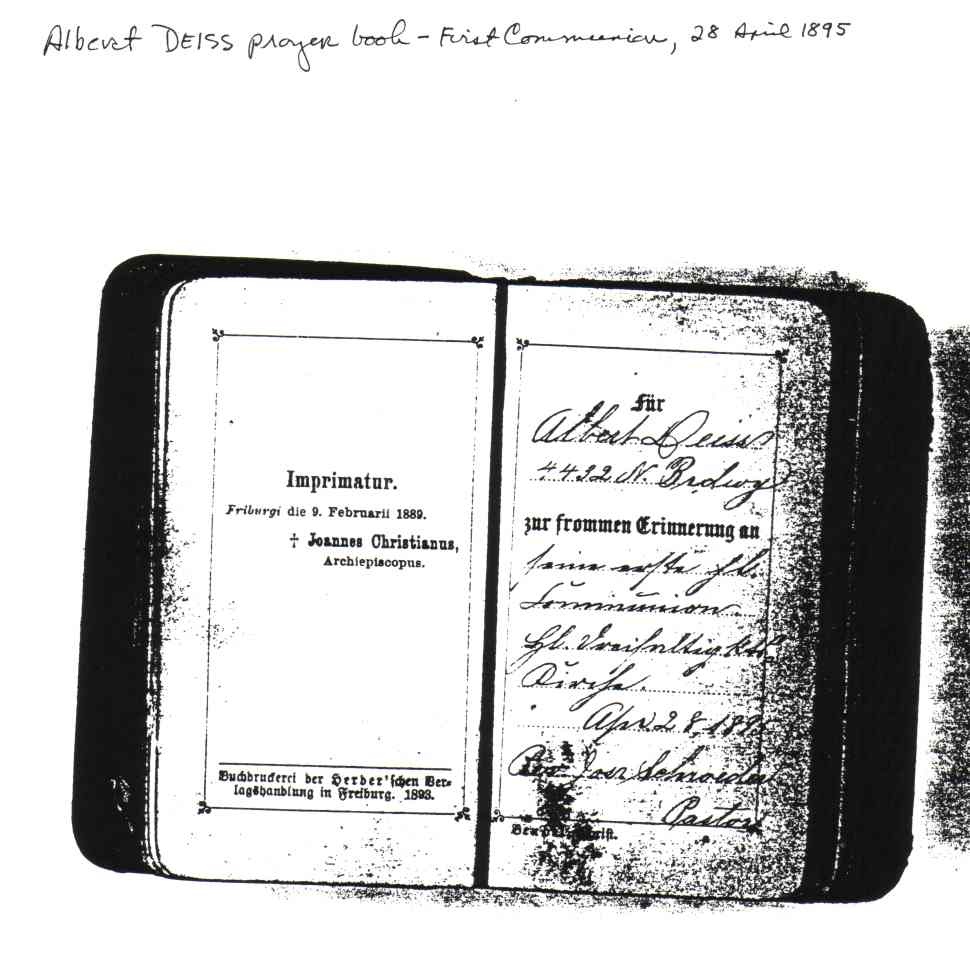 Albert DEISS prayer book - First Communion, 28 April 1895
Imprimatur.
Friburgi die 9. Februarii 1889.
† Joannes Christianus,
Archiepiscopus.
Buchdruckerei der Herder'schen Ver-
lagshandlung in Freiburg. 1893.
Für
Albert Deiss
4432 N. Brdwy
zur frommen Erinnerung an
seine erste hl.
Communion
Hl. Dreifaltigkts
Kirche.
Apr. 28, 189
Rev. Jos Schroeder
Pastor